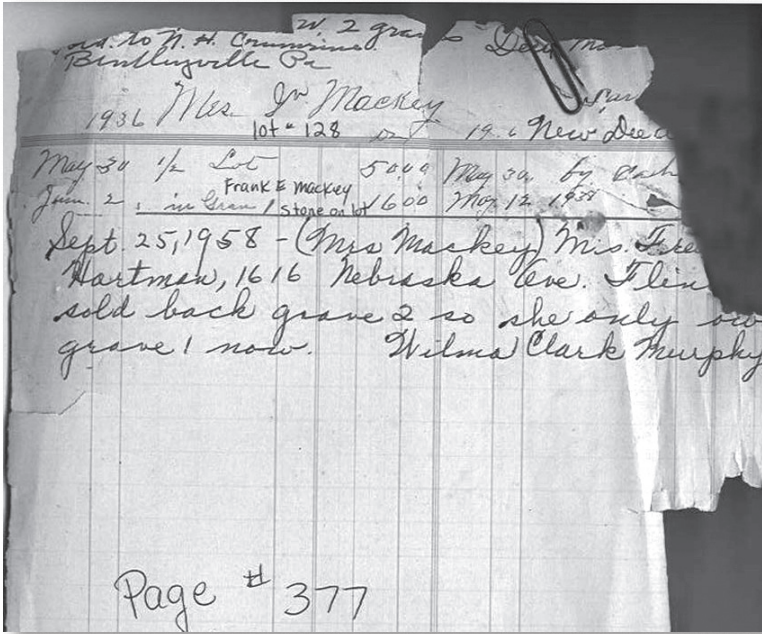 W. 2 gra
to N. H. Crumrine
Bentleyville Pa
1936 Mrs. Jn Mackey
lot # 128 New Deed
May 30 1/2 Lot 50.00 May 30 by Cash
Frank E Mackey
June 2 1 stone on lot 16 00 May 12 1938
Sept. 25, 1958 - (Mrs Mackey) Mrs. Fre
Hartman, 1616 Nebraska Ave. Flin
sold back grave 2 so she only ow
grave 1 now. Wilma Clark Murphy
Page # 377